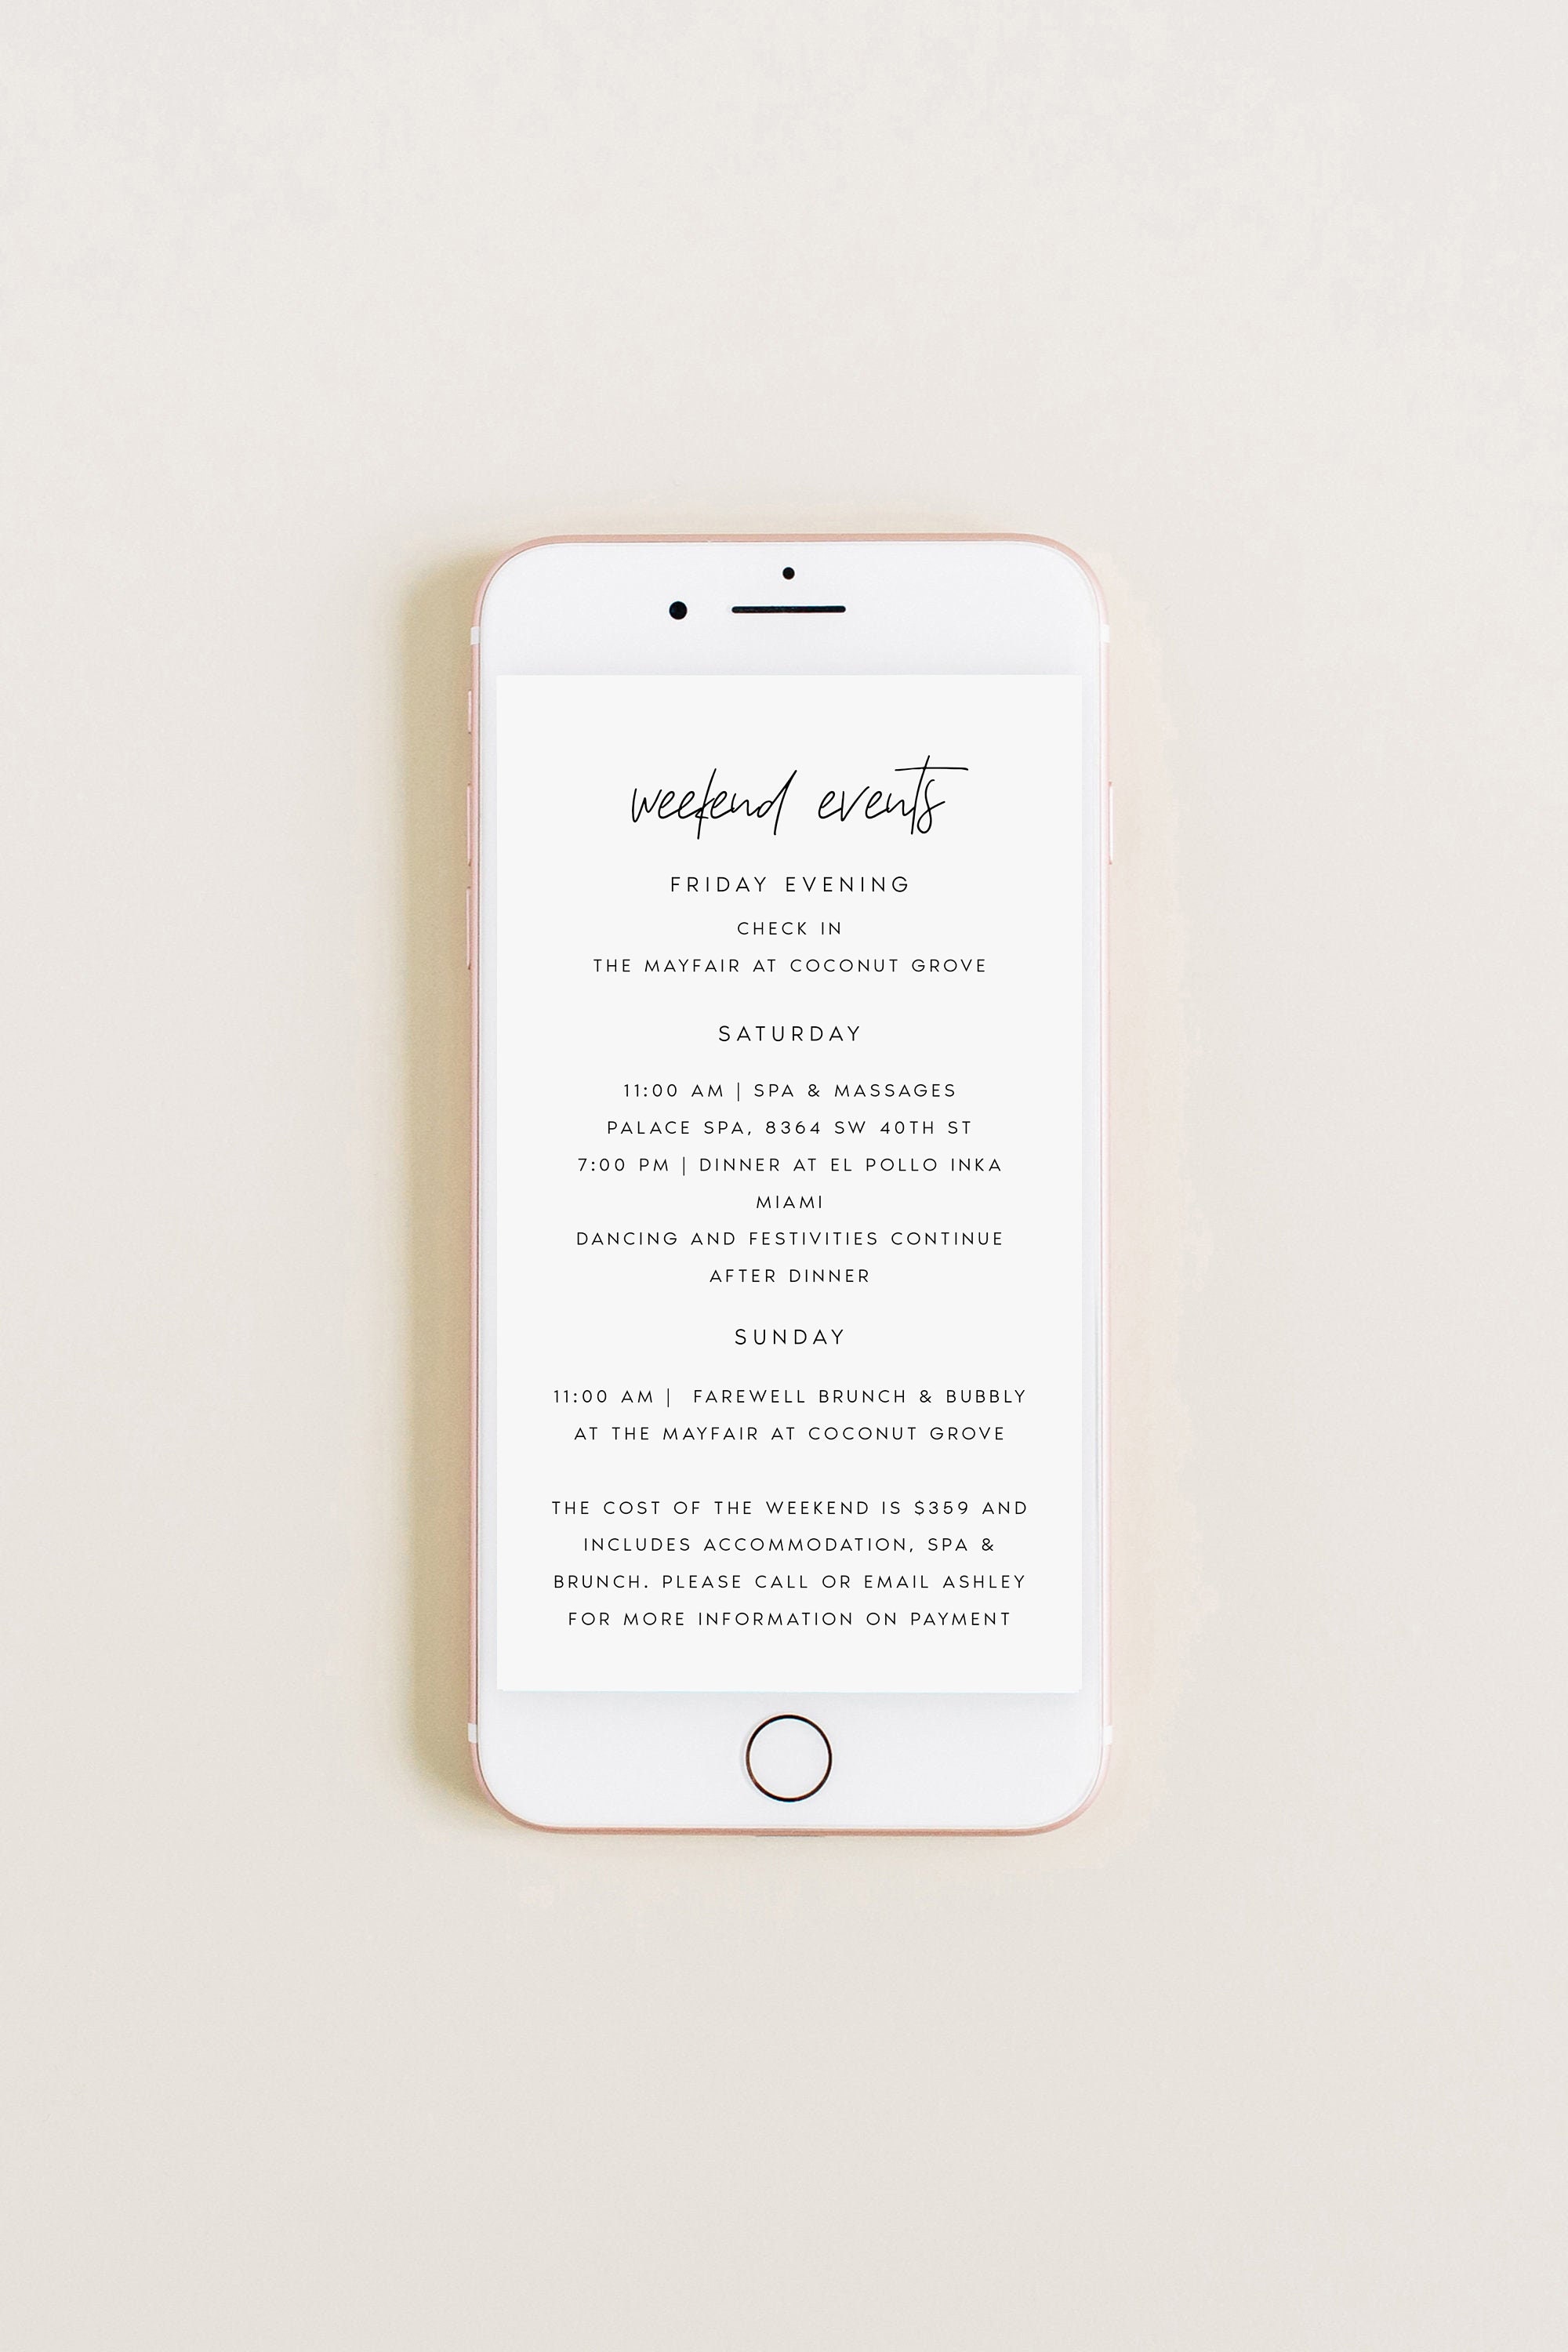 weekend events
FRIDAY EVENING
CHECK IN
THE MAYFAIR AT COCONUT GROVE
SATURDAY
11:00 AM | SPA & MASSAGES
PALACE SPA, 8364 SW 40TH ST
7:00 PM | DINNER AT EL POLLO INKA
MIAMI
DANCING AND FESTIVITIES CONTINUE
AFTER DINNER
SUNDAY
11:00 AM | FAREWELL BRUNCH & BUBBLY
AT THE MAYFAIR AT COCONUT GROVE
THE COST OF THE WEEKEND IS $359 AND
INCLUDES ACCOMMODATION, SPA &
BRUNCH. PLEASE CALL OR EMAIL ASHLEY
FOR MORE INFORMATION ON PAYMENT